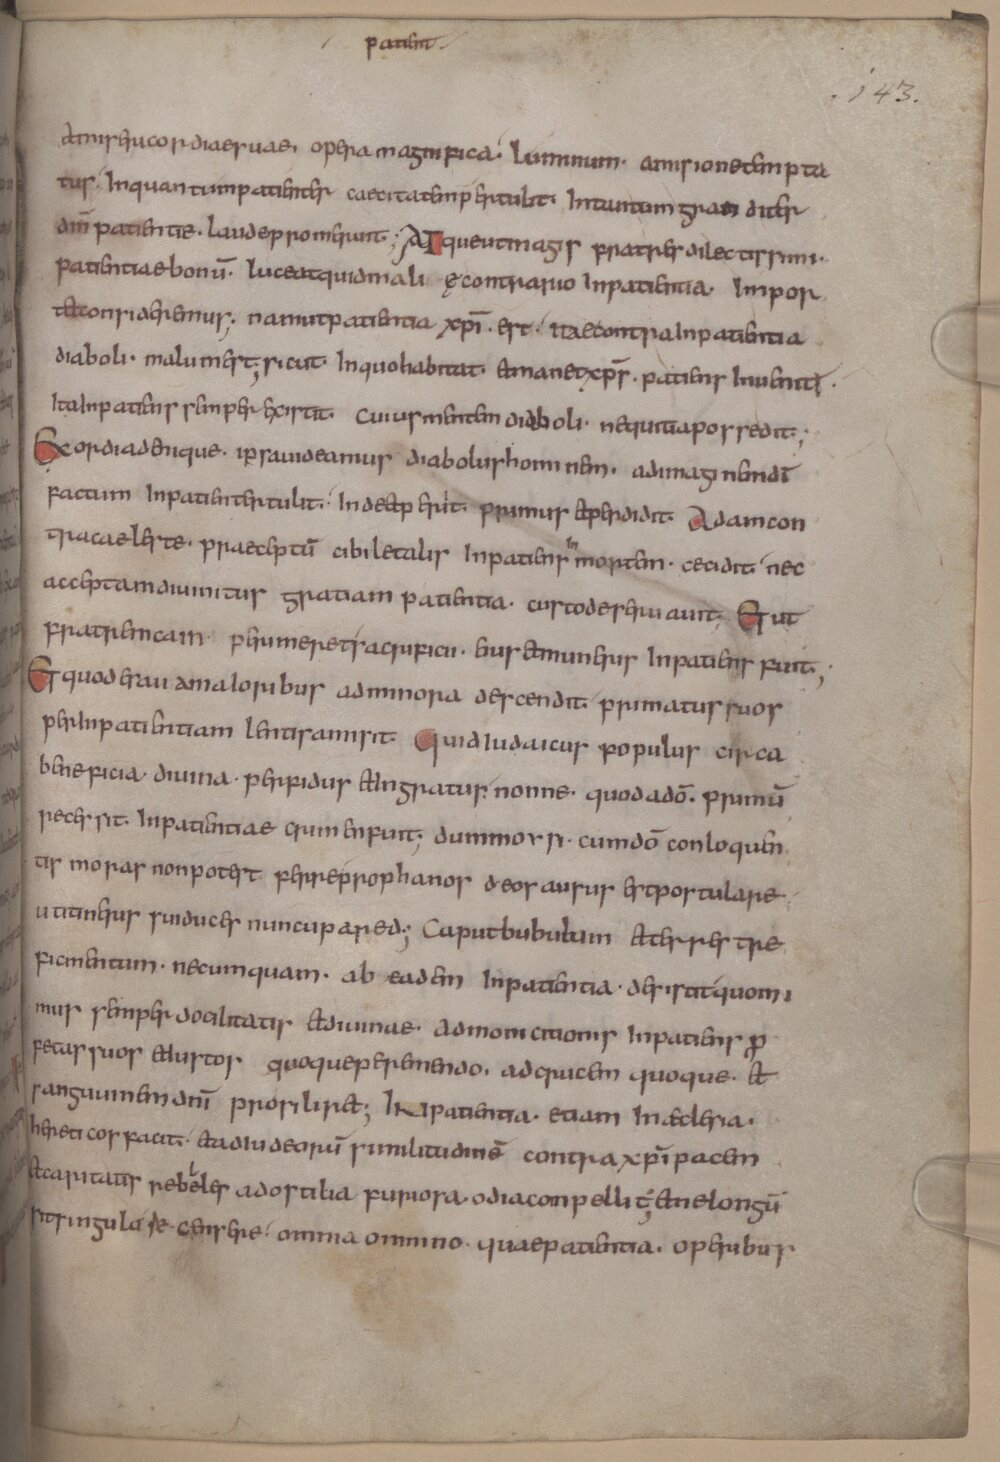 patient.
.143.
amisericordiae suae. opera magnifica. luminum. amisione tempta
tus. Inquantum patienter caecitatem pertulit. Intantum granditer
dm̄ patientie. laude promeruit; Atque ut magis fratres dilectissimi.
patientiae bonū. luceat quid mali e contrario Inpatientia. Impor
tet consideremus; nam ut patientia xp̄i. est. ita e contra Inpatientia
diaboli. malum est; sicut In quo habitat et manet xp̄s. patiens Inuenit.
Ita Inpatiens semper existit. cuius mentem diaboli. nequitia possedit;
Exordia denique. ipsa uideamus diabolus hominem. ad imaginem dī
factum Inpatienter tulit. Inde et periit. primus et perdidit. Adam con
tra caeleste. praeceptū cibi letalis Inpatiens In mortem. cecidit. nec
acceptam diuinitus gratiam patientia. custode seruauit; Et ut
fratrem cain. phumeret sacrificii. eius et muneris Inpatiens fuit;
Et quod esau a maioribus ad minora descendit. primatus suos
per Inpatientiam lentis amisit. Quid Iudaicus populus circa
beneficia. diuina. perfidus et Ingratus. nonne. quod a dō. primū
recessit. Inpatientiae crimen fuit; dum moysi. cum dō conloquen
tis moras non potest ferre prophanos deos ausus est postulare.
ut itineris sui duces nuncupared; Caput bubulum et terrestre
ficmentum. necumquam. ab eadem Inpatientia. destitit quomi
nus semper docilitatis et diuinae. admonicitionis Inpatiens pro
fetas suos et Iustos quoque peremendo. ad crucem quoque. et
sanguinem dnī prosiliret; Inpatientia. etiam In æclesia.
hereticos facit. et ad Iudeorū similitudinē contra xp̄i pacem
et caritatis rebelles ad ostilia furiosa. odia conpellit; et ne longū
sit singula recensere. omnia omnino. quae patientia. operibus